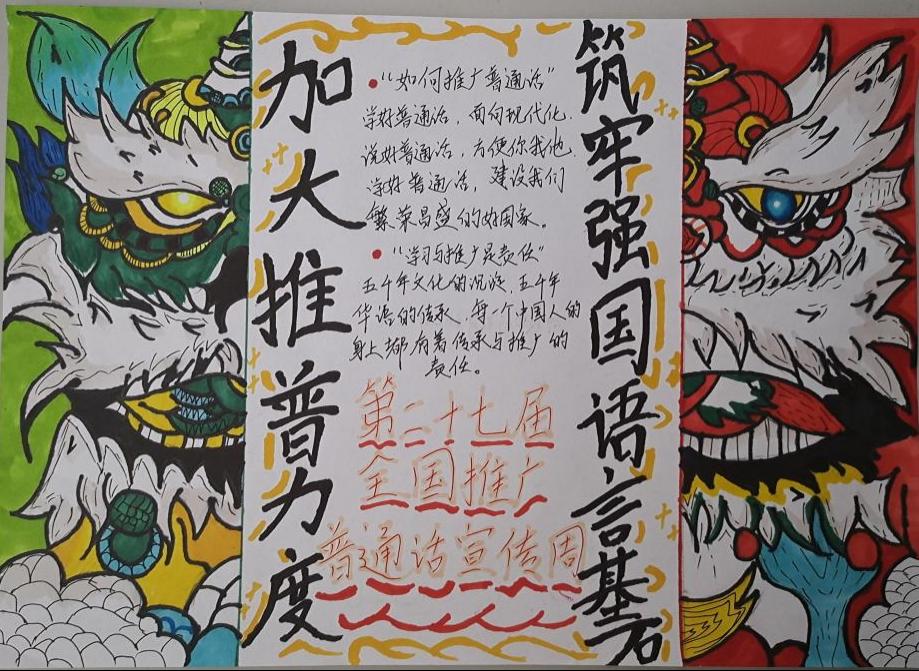 加大推普力度
•“如何推广普通话”
学好普通话，面向现代化.
说好普通话，方便你我他.
学好普通话，建设我们
繁荣昌盛的好国家。
•“学习与推广是责任”
五千年文化的沉淀，五千年
华语的传承，每一个中国人的
身上都有着传承与推广的
责任。
第二十七届
全国推广
普通话宣传周
筑牢强国语言基石